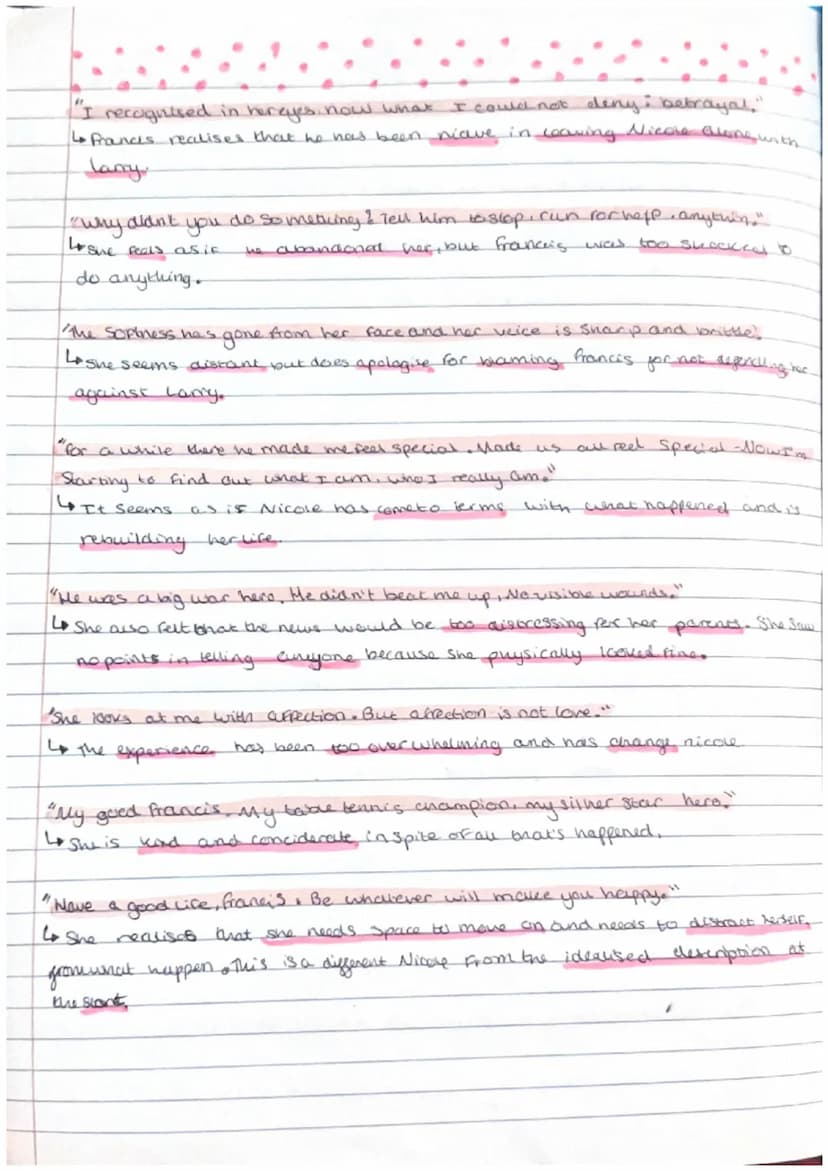 "I recognised in her eyes now what I could not deny: betrayal."
↳ Francis realises that he has been niave in leaving Nicole alone with
Larry.
"Why didn't you do something? Tell him to stop, run for help, anythin."
↳ She feels as if he abandoned her, but Francis was too shocked to
do anything.
"The softness has gone from her face and her voice is sharp and brittle."
↳ She seems distant but does apologise for blaming Francis for not defending her
against Larry.
"For a while there he made me feel special. Made us all feel special - Now I'm
starting to find out what I am, who I really am."
↳ It seems as if Nicole has come to terms with what happened and is
rebuilding her life.
"He was a big war hero, He didn't beat me up, No visible wounds."
↳ She also felt that the news would be too distressing for her parents. She saw
no points in telling anyone because she physically looked fine.
"She looks at me with affection. But affection is not love."
↳ The experience has been too overwhelming and has change nicole
"My good Francis. My table tennis champion, my silver star hero."
↳ She is kind and conciderate in spite of all that's happened.
"Have a good life, Francis. Be whatever will make you happy."
↳ She realises that she needs space to move on and needs to distract herself
from what happen. This is a different Nicole from the idealised description at
the start.